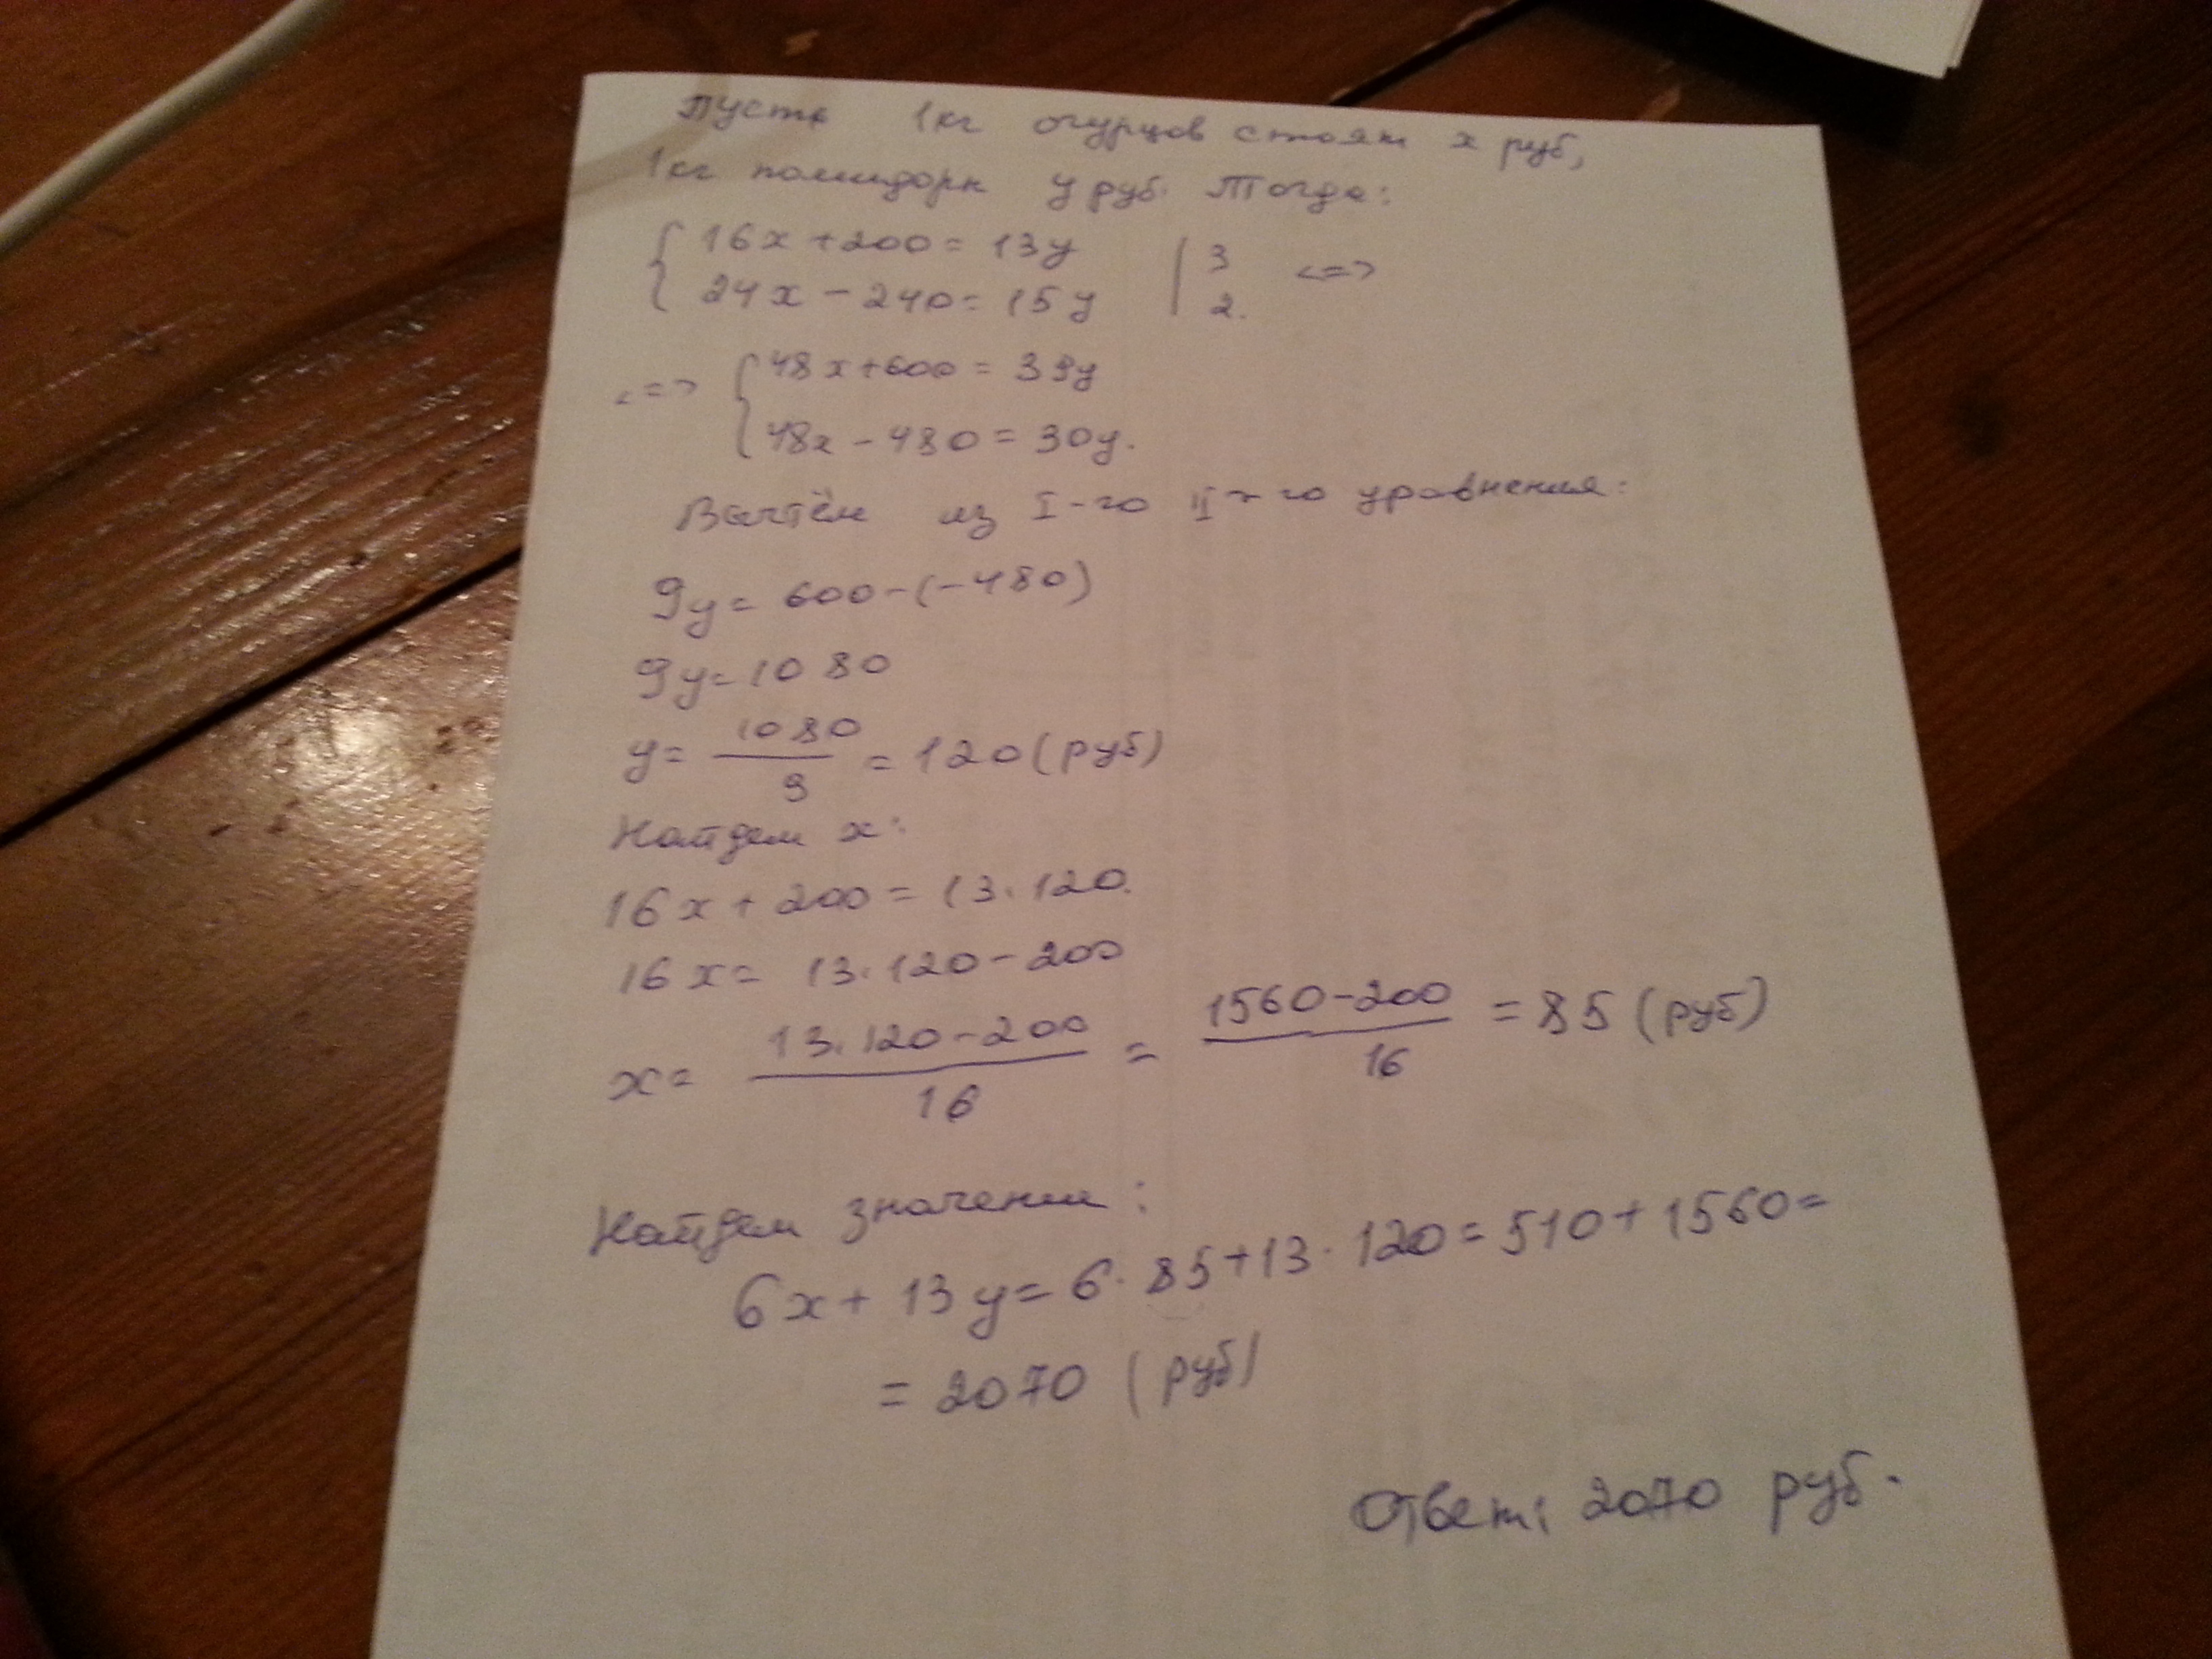 Пусть 1кг огурцов стоят x руб,
1кг помидоры y руб. Тогда:
{ 16x + 200 = 13y | 3 <=>
{ 24x - 240 = 15y | 2.
<=> { 48x + 600 = 39y
{ 48x - 480 = 30y.
Вычтём из I-го II-го уравнения:
9y = 600 - (-480)
9y = 1080
y = 1080/9 = 120 (руб)
Найдем x:
16x + 200 = 13·120.
16x = 13·120 - 200
x = (13·120 - 200)/16 = (1560 - 200)/16 = 85 (руб)
Найдем значении:
6x + 13y = 6·85 + 13·120 = 510 + 1560 =
= 2070 (руб)
Ответ: 2070 руб.